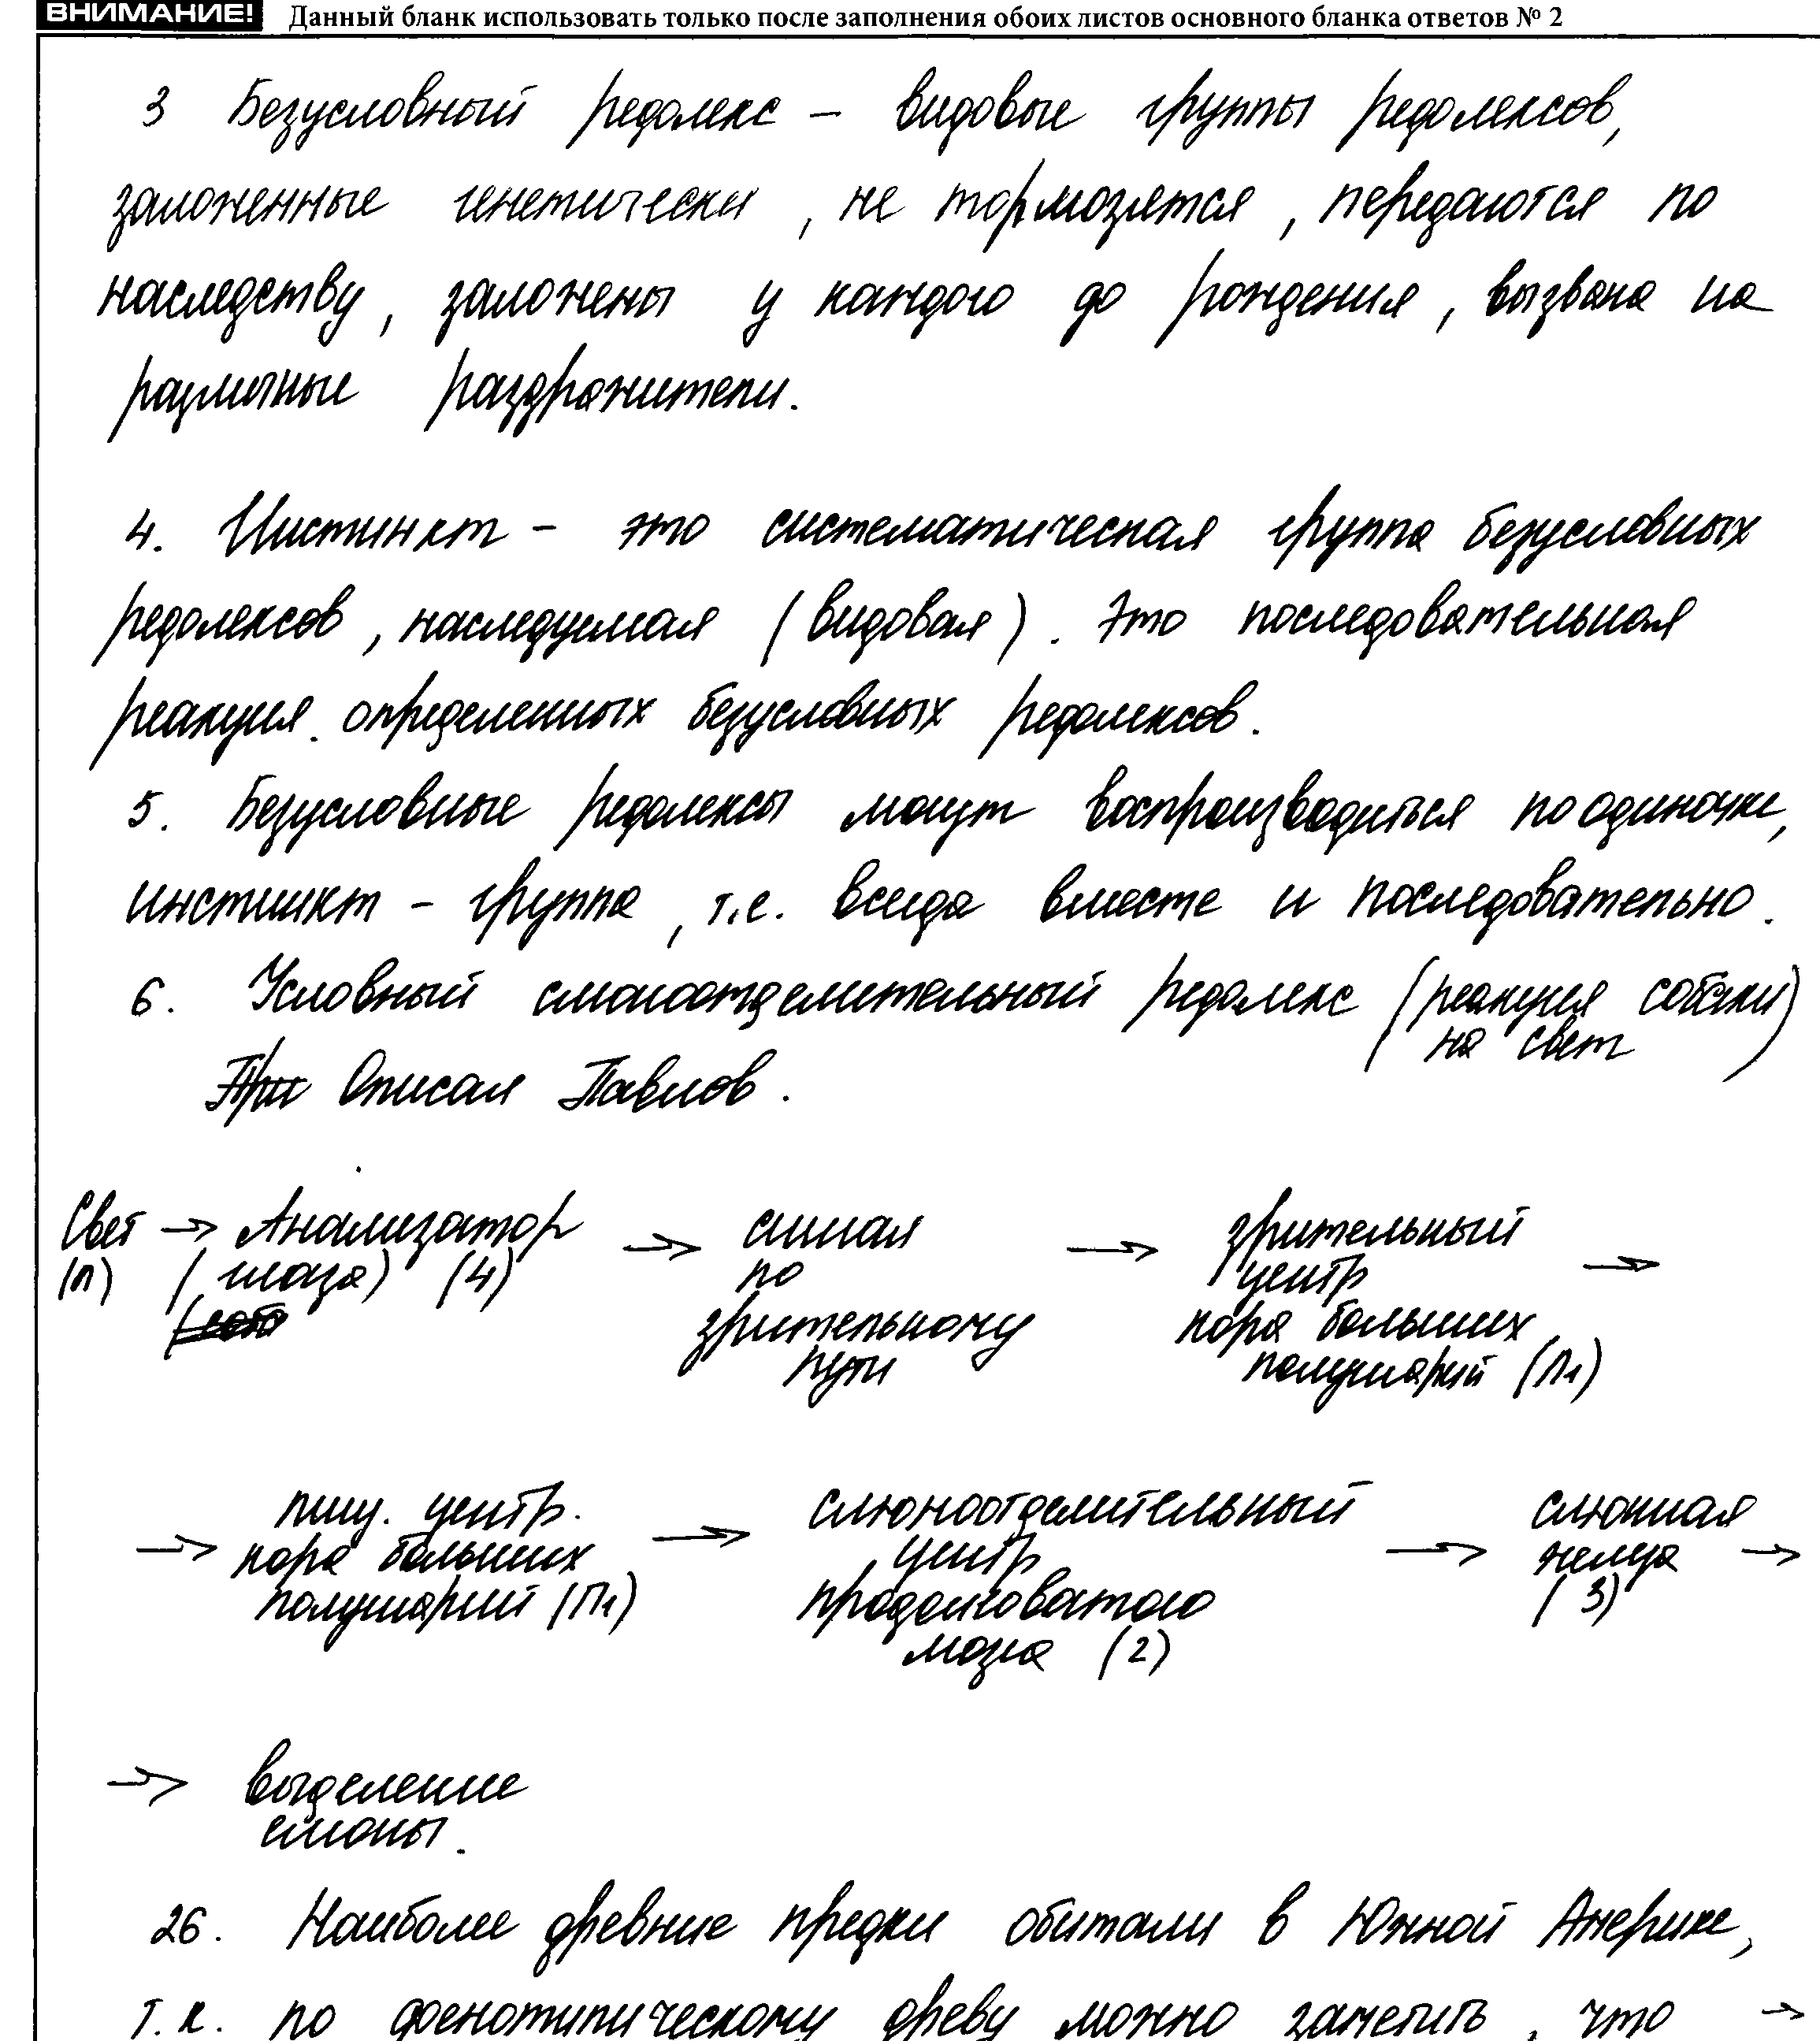 ВНИМАНИЕ! Данный бланк использовать только после заполнения обоих листов основного бланка ответов № 2
3 Безусловный рефлекс – видовые группы рефлексов,
заложенные генетически, не тормозятся, передаются по
наследству, заложены у каждого до рождения, вызвана на
различные раздражители.
4. Инстинкт – это систематическая группа безусловных
рефлексов, наследуемая (видовая). Это последовательная
реакция определенных безусловных рефлексов.
5. Безусловные рефлексы могут воспроизводиться поодиночке,
инстинкт – группа, т.е. всегда вместе и последовательно.
6. Условный слюноотделительный рефлекс (реакция собаки
на свет)
При Описал Павлов.
Свет → Анализатор → сигнал → зрительный →
(П) (глаза) (4) по центр
зрительному кора больших
пути полушарий (П1)
→ пищ. центр. → слюноотделительный → слюнная →
кора больших центр железа
полушарий (П1) продолговатого (3)
мозга (2)
→ выделение
слюны.
26. Наиболее древние предки обитали в Южной Америке,
т.к. по фенотипическому древу можно заметить, что →